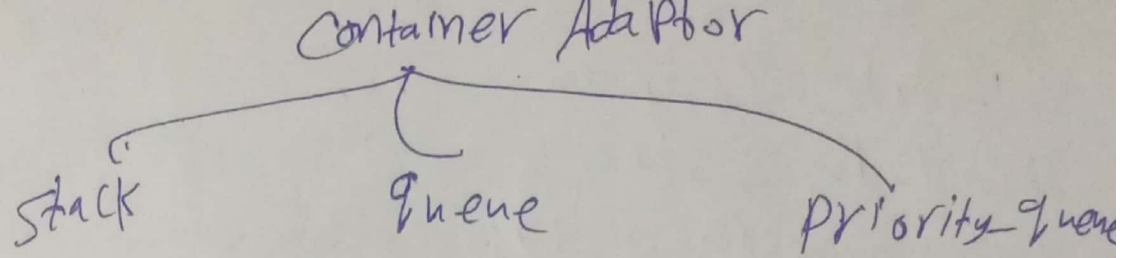 Container Adaptor
stack queue priority_queue